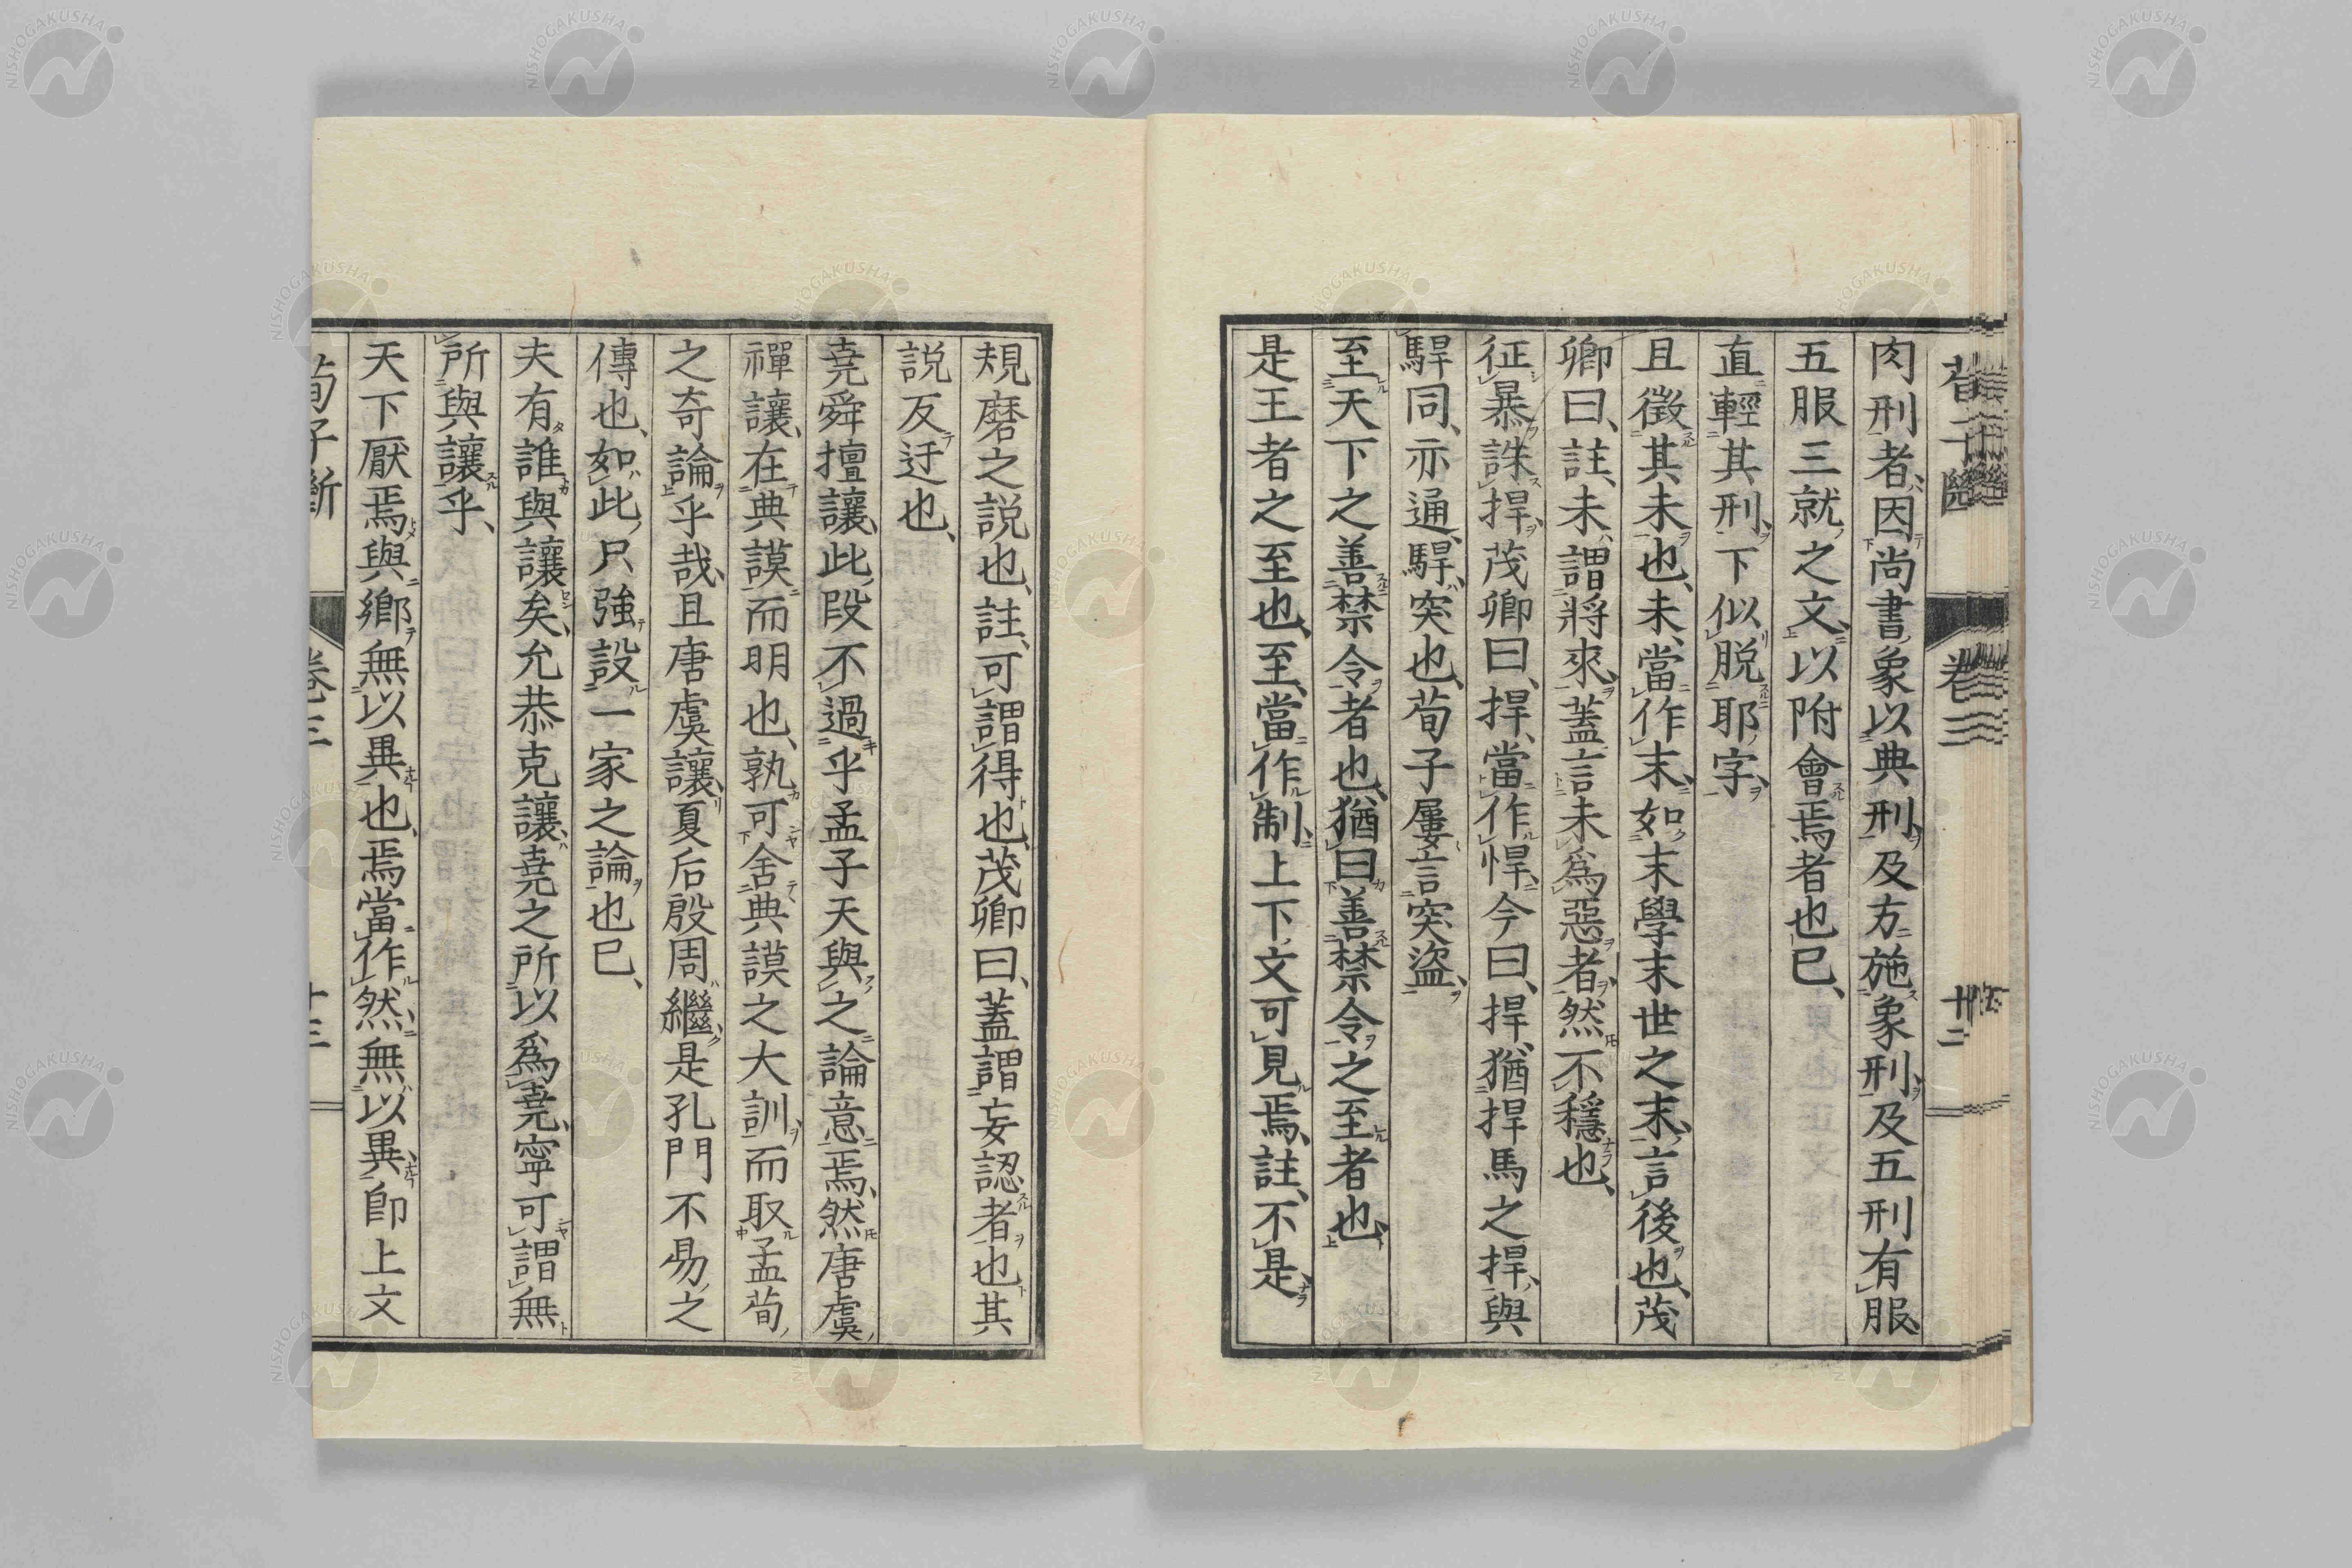 肉刑者、因尚書象以典刑及方施象刑及五刑有服、
五服三就之文、以附會焉者也已、
直輕其刑、下似脱耶字、
且徵其未也、未、當作末、如末學末世之末、言後也、茂
卿曰、註、未謂將來、蓋言未爲惡者、然不穩也、
征暴誅捍、茂卿曰、捍、當作悍、今曰、捍、猶捍馬之捍、與
駻同、亦通、駻突也、荀子屢言突盜、
至天下之善禁令者也、猶曰善禁令之至者也、
是王者之至也、至、當作制、上下文可見焉、註、不是、
規磨之説也、註、可謂得也、茂卿曰、蓋謂妄認者也其
説反迂也、
堯舜擅讓、此段不過乎孟子天與之論意焉、然唐虞
禪讓、在典謨而明也、孰可舍典謨之大訓、而取孟荀
之奇論乎哉、且唐虞讓、夏后殷周繼、是孔門不易之
傳也、如此、只強設一家之論也已、
夫有誰與讓矣、允恭克讓、堯之所以爲堯、寧可謂無
所與讓乎、
天下厭焉與鄉無以異也、焉當作然、無以異、卽上文
荀子斷
卷三
十三
卷三
十二
NISHOGAKUSHA